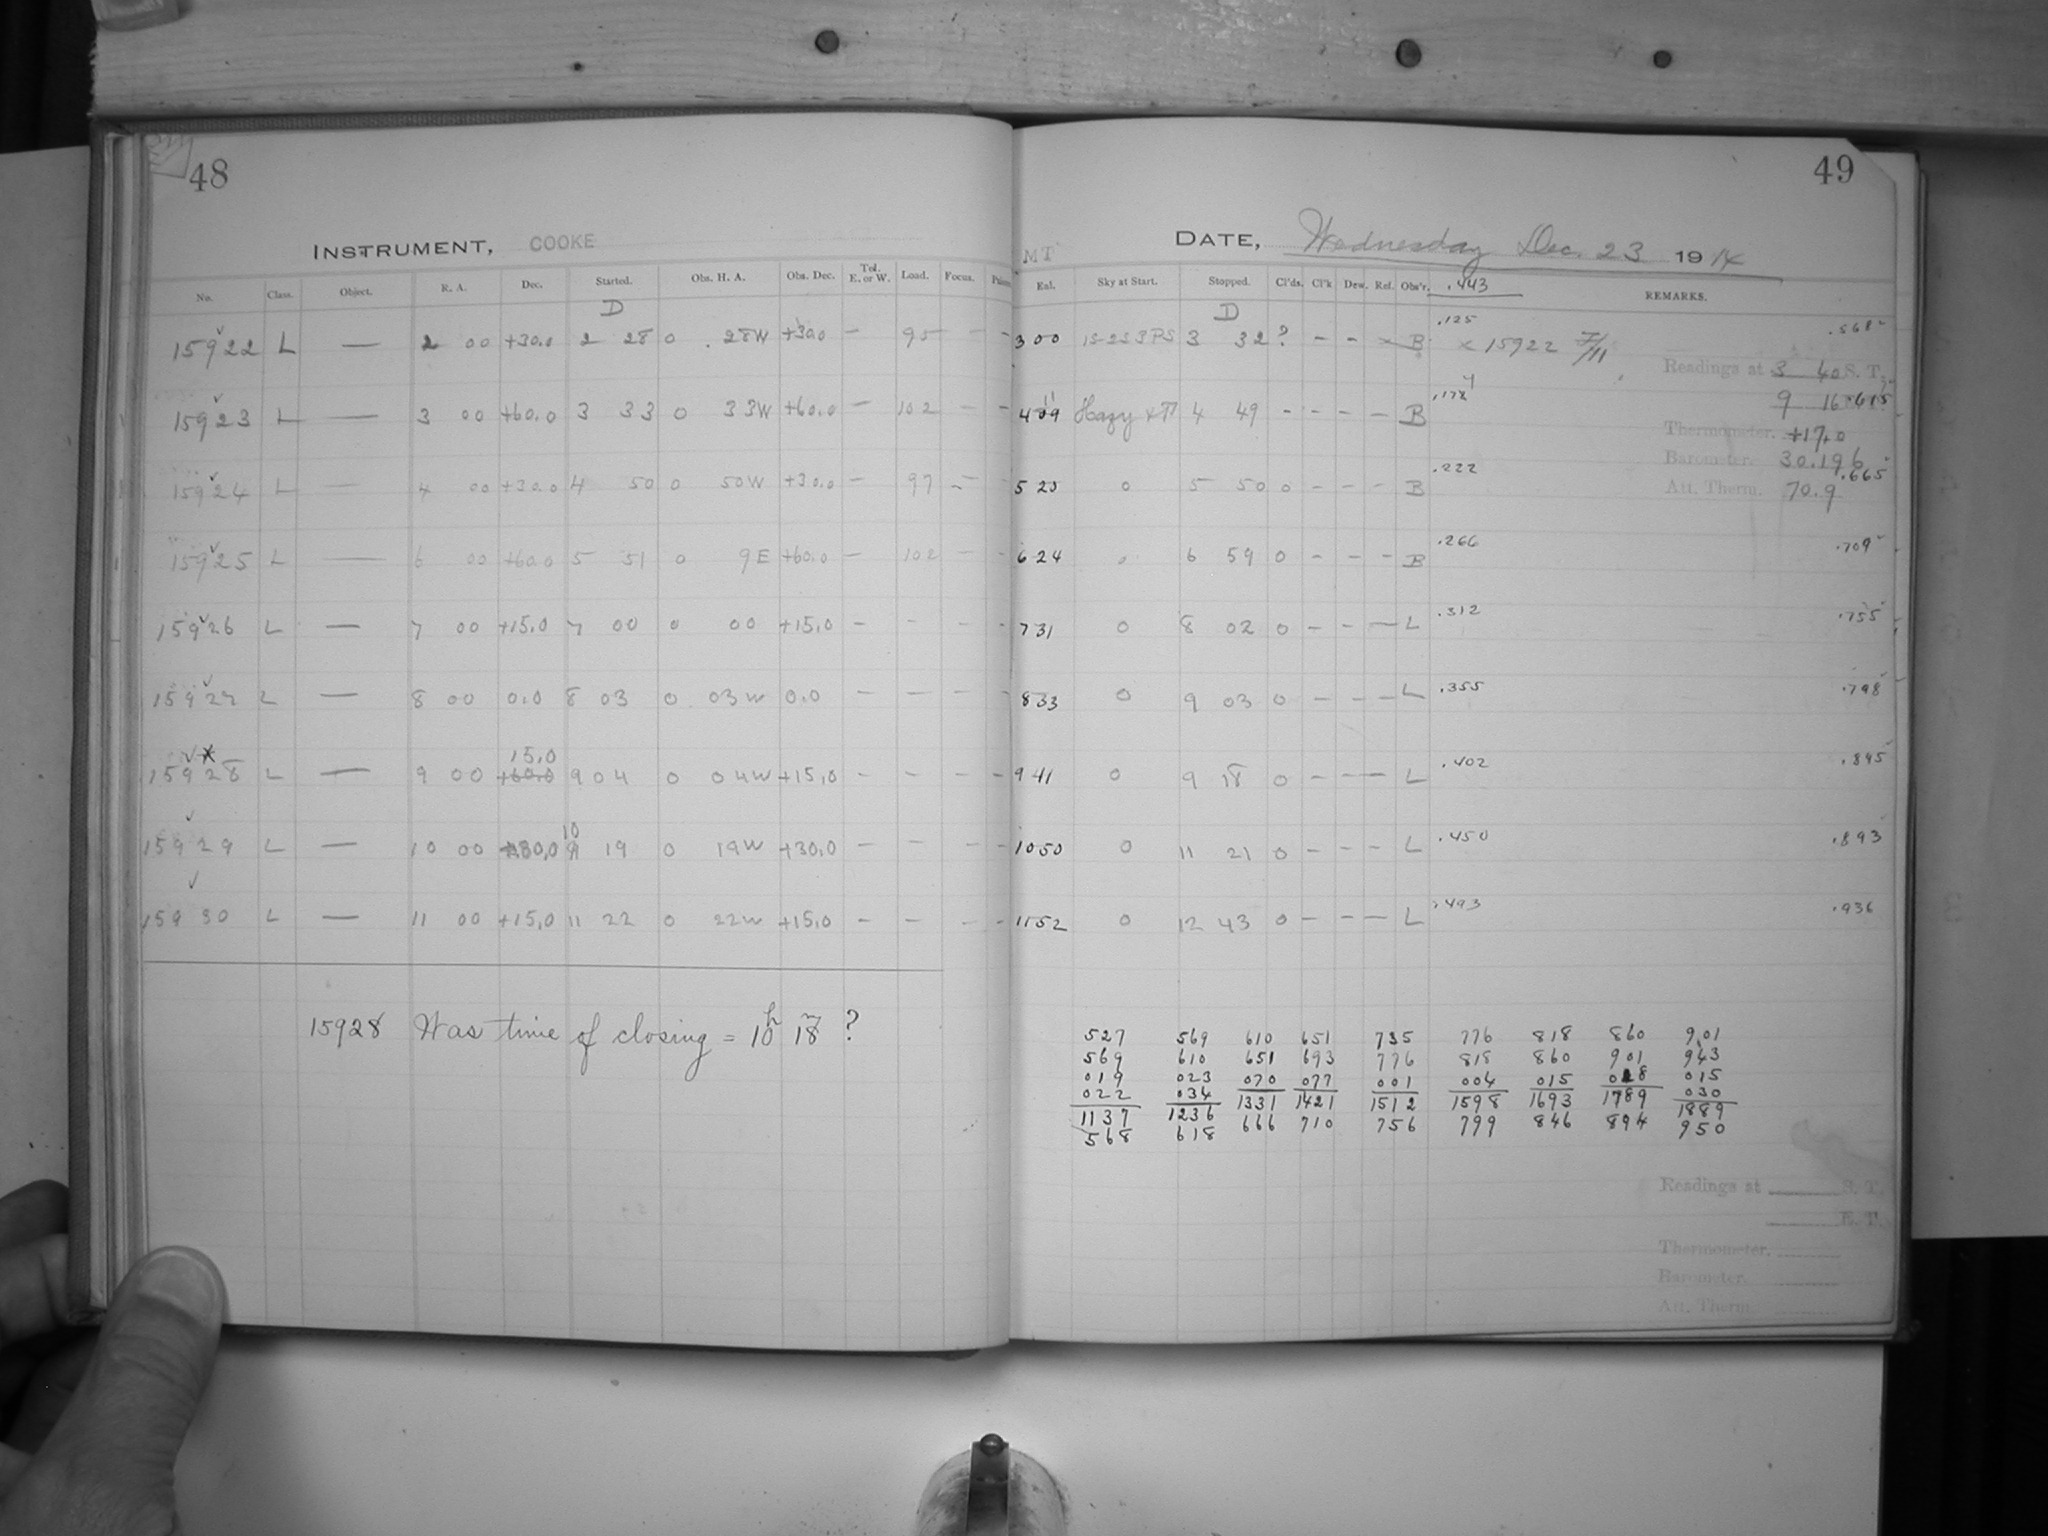 48
INSTRUMENT, COOKE
No. Class. Object. R. A. Dec. Started. Obs. H. A. Obs. Dec. Tel. E. or W. Load. Focus.
D
15922 L — 2 00 +30.0 2 28 0 28W +30.0 — 95 — —
15923 L — 3 00 +60.0 3 33 0 33W +60.0 — 102 — —
15924 L — 4 00 +30.0 4 50 0 50W +30.0 — 97 —
15925 L — 6 00 +60.0 5 51 0 9E +60.0 — 102 — —
15926 L — 7 00 +15.0 7 00 0 00 +15.0 — — — —
15927 L — 8 00 0.0 8 03 0 03W 0.0 — — — —
15.0
15928 L — 9 00 +60.0 9 04 0 04W +15.0 — — — —
10
15929 L — 10 00 +30.0 9 19 0 19W +30.0 — — — —
15930 L — 11 00 +15.0 11 22 0 22W +15.0 — — — —
15928 Was time of closing = 10h 18m ?
49
MT DATE, Wednesday Dec. 23 1914
Eal. Sky at Start. Stopped. Cl'ds. Cl'k Dew. Ref. Obs'r. .443 REMARKS.
D
300 3 32 ? – – × B .125 × 15922 .568
Readings at 3 40 S. T.
409 Hazy 4 49 – – – – B 9 16 .615
Thermometer. +17.0
Barometer. 30.196
523 0 5 50 0 – – – B .222 .665
Att. Therm. 70.9
624 6 59 0 – – – B .266 .709
731 0 8 02 0 – – — L .312 .755
833 0 9 03 0 – – – L .355 .798
941 0 9 18 0 – – — L .402 .845
1050 0 11 21 0 – – – L .450 .893
1152 0 12 43 0 – – – L .493 .936
527 569 610 651 735 776 818 860 901
569 610 651 693 776 818 860 901 943
019 023 070 077 001 004 015 028 015
022 034 030
1137 1236 1331 1421 1512 1598 1693 1789 1889
568 618 666 710 756 799 846 894 950
Readings at S. T.
E. T.
Thermometer.
Barometer.
Att. Therm.